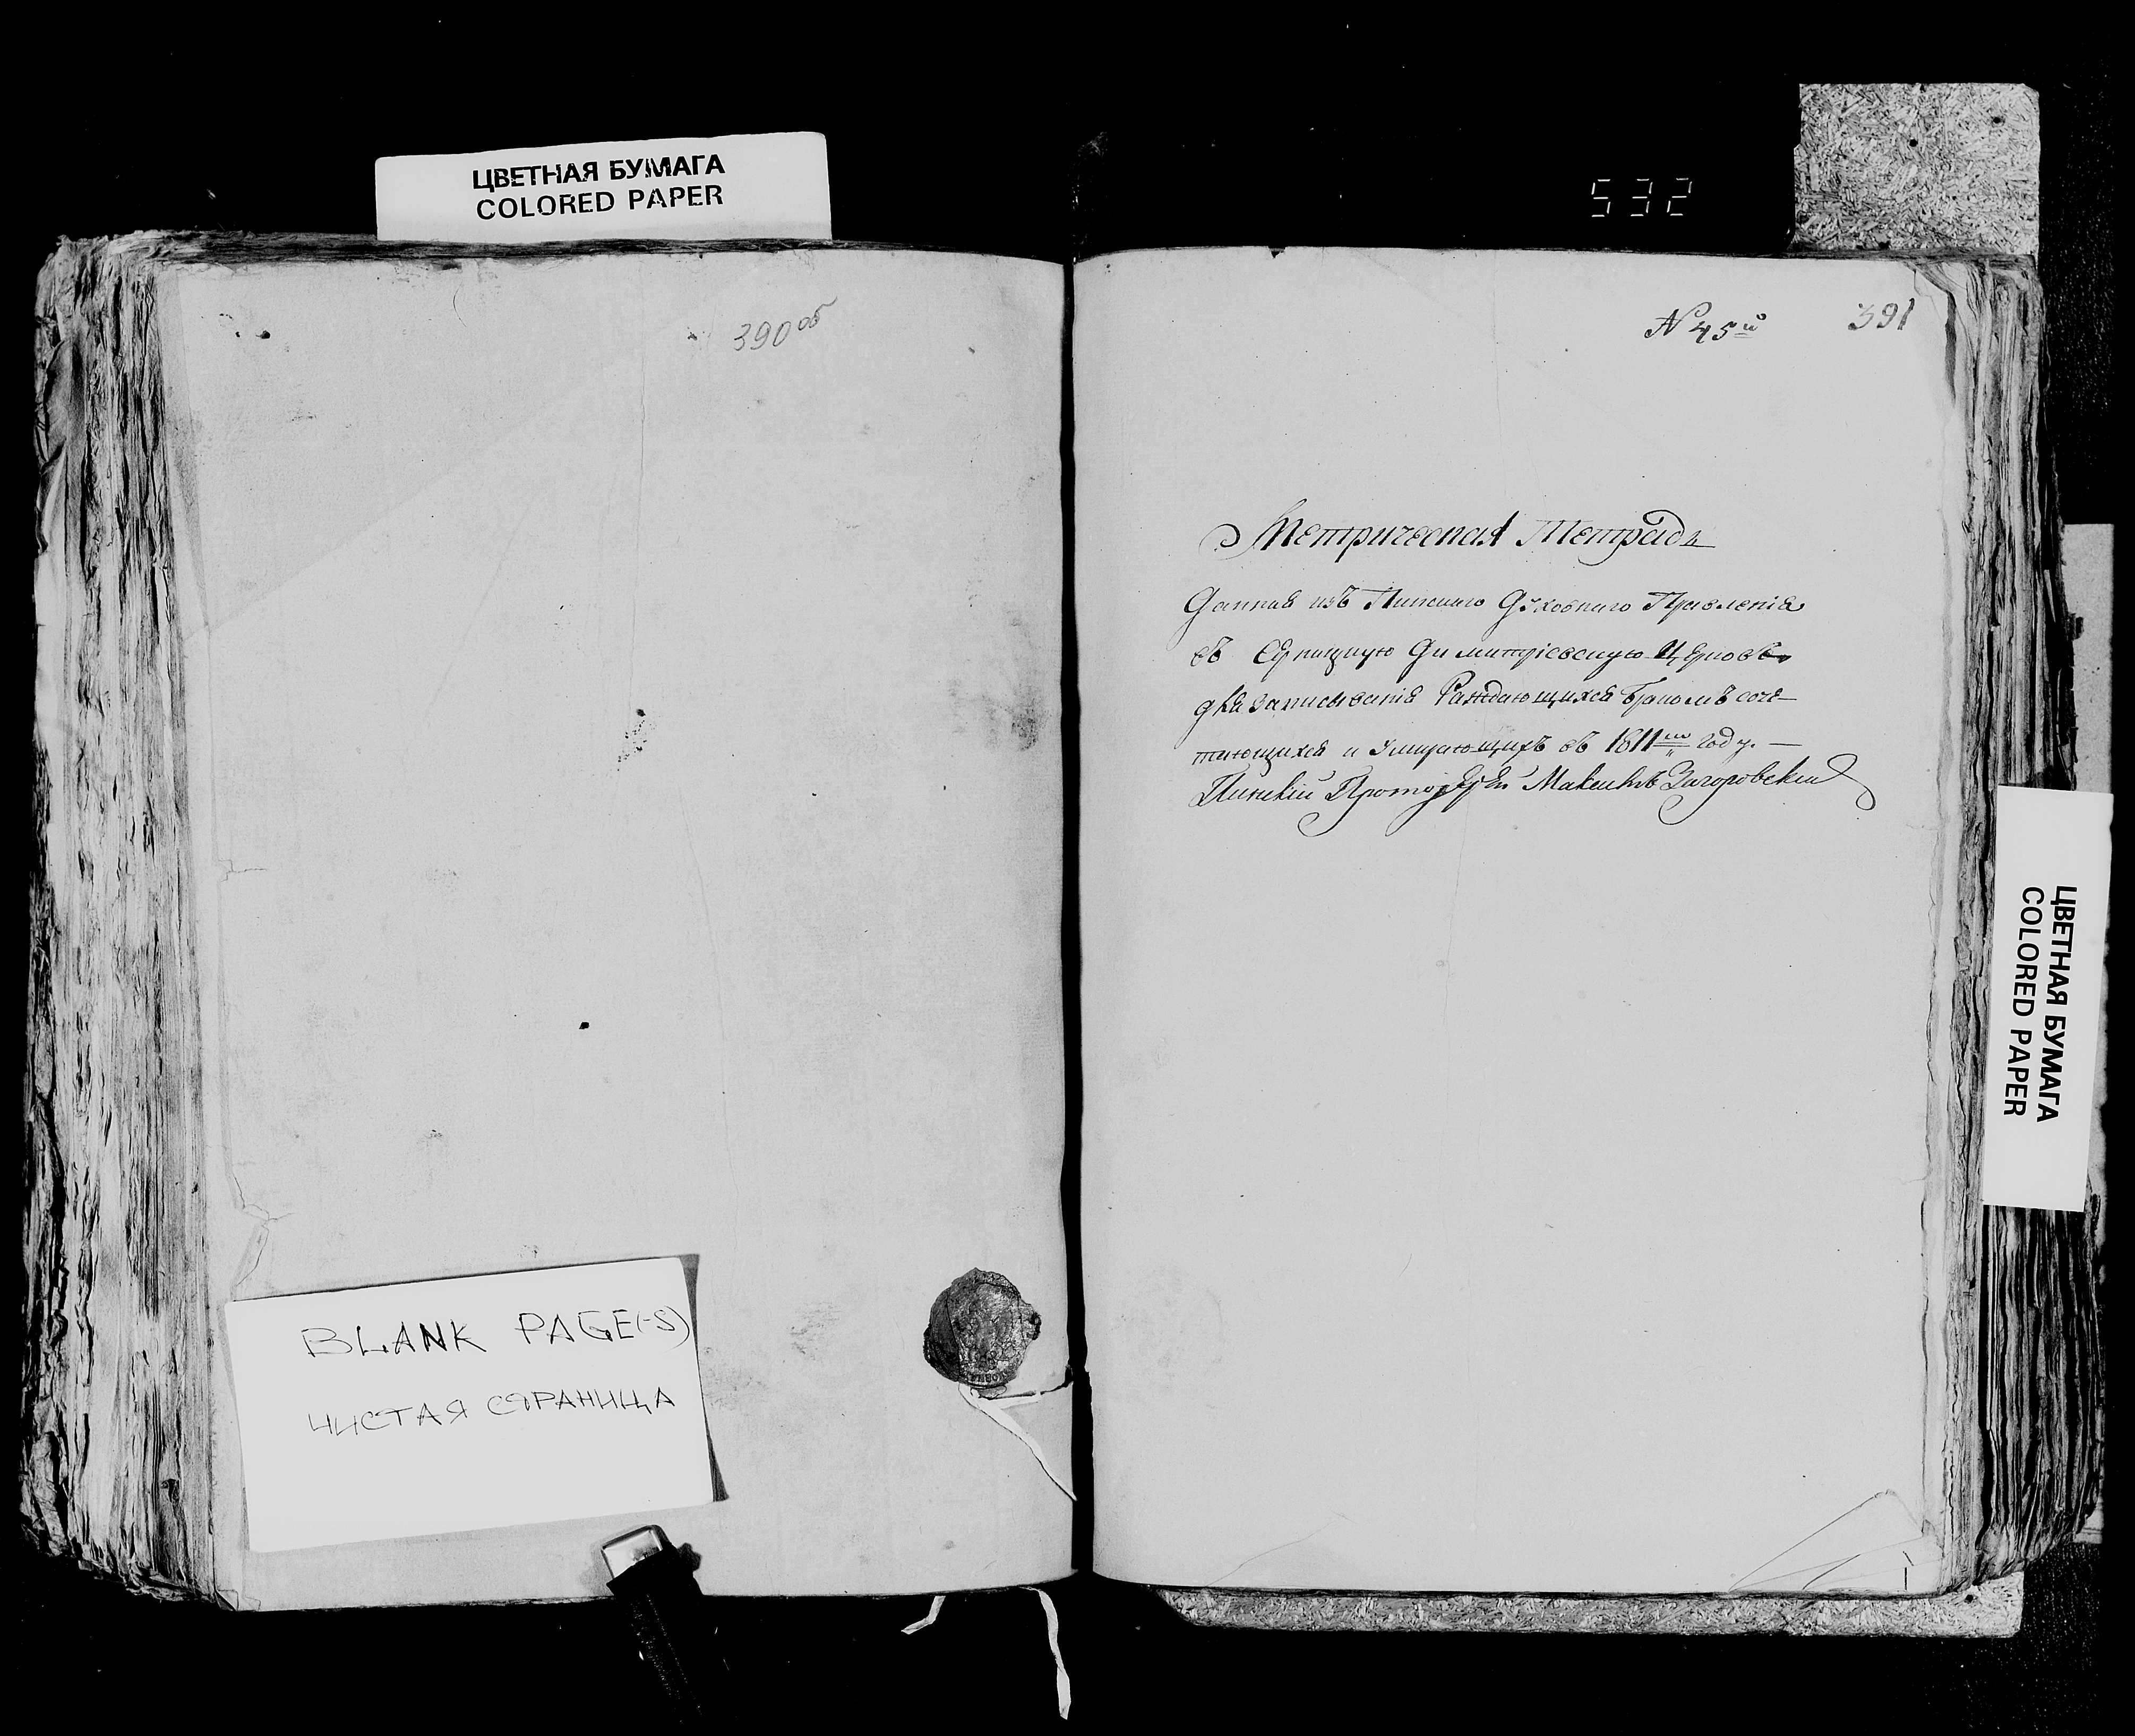 ЦВЕТНАЯ БУМАГА
COLORED PAPER
532
390 об
N 45й
391
Метрическая Тетрадь
Данная изъ Пинскаго Духовнаго Правленія
въ Димитріевскую Церковь
для записыванія Раждающихся бракомъ соче-
тающихся и Умирающихъ въ 1811м году. —
Пинскій Протоіерей Загоровский
ЦВЕТНАЯ БУМАГА
COLORED PAPER
BLANK PAGE(-S)
ЧИСТАЯ СТРАНИЦА